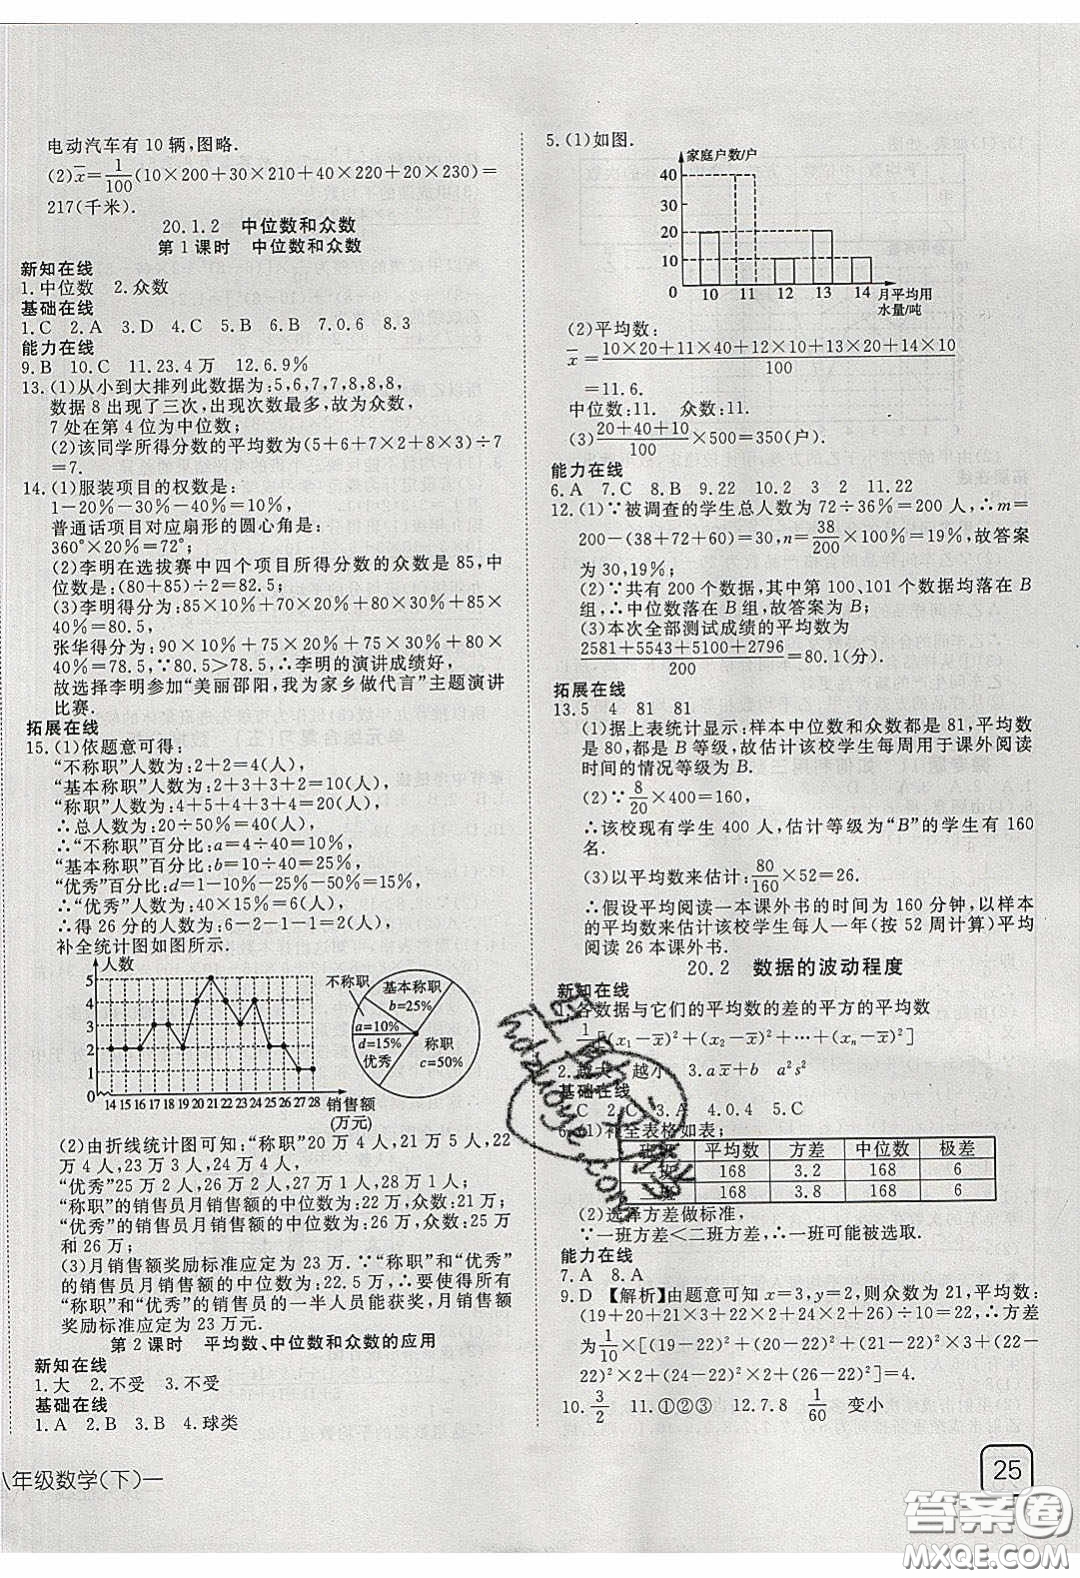 电动汽车有 10 辆,图略.
(2)x̄=1/100(10×200+30×210+40×220+20×230)=
217(千米).
20.1.2 中位数和众数
第 1 课时 中位数和众数
新知在线
1.中位数 2.众数
基础在线
1.C 2.A 3.D 4.C 5.B 6.B 7.0.6 8.3
能力在线
9.B 10.C 11.23.4 万 12.6.9%
13.(1)从小到大排列此数据为:5,6,7,7,8,8,8,
数据 8 出现了三次,出现次数最多,故为众数,
7 处在第 4 位为中位数;
(2)该同学所得分数的平均数为(5+6+7×2+8×3)÷7
=7.
14.(1)服装项目的权数是:
1-20%-30%-40%=10%,
普通话项目对应扇形的圆心角是:
360°×20%=72°;
(2)李明在选拔赛中四个项目所得分数的众数是 85,中
位数是:(80+85)÷2=82.5;
(3)李明得分为:85×10%+70×20%+80×30%+85×
40%=80.5,
张华得分为:90×10%+75×20%+75×30%+80×
40%=78.5,∵80.5>78.5,∴李明的演讲成绩好,
故选择李明参加“美丽邵阳,我为家乡做代言”主题演讲
比赛.
拓展在线
15.(1)依题意可得:
“不称职”人数为:2+2=4(人),
“基本称职”人数为:2+3+3+2=10(人),
“称职”人数为:4+5+4+3+4=20(人),
∴总人数为:20÷50%=40(人),
∴“不称职”百分比:a=4÷40=10%,
“基本称职”百分比:b=10÷40=25%,
“优秀”百分比:d=1-10%-25%-50%=15%,
∴“优秀”人数为:40×15%=6(人),
∴得 26 分的人数为:6-2-1-1=2(人),
补全统计图如图所示.
人数
5
4
3
2
1
0
14 15 16 17 18 19 20 21 22 23 24 25 26 27 28 销售额
(万元)
不称职
a=10%
d=15%
优秀
基本称职
b=25%
称职
c=50%
(2)由折线统计图可知:“称职”20 万 4 人,21 万 5 人,22
万 4 人,23 万 3 人,24 万 4 人,
“优秀”25 万 2 人,26 万 2 人,27 万 1 人,28 万 1 人,
“称职”的销售员月销售额的中位数为:22 万,众数:21 万;
“优秀”的销售员月销售额的中位数为:26 万,众数:25 万
和 26 万;
(3)月销售额奖励标准应定为 23 万元.∵“称职”和“优秀”
的销售员月销售额的中位数为:22.5 万,∴要使得所有
“称职”和“优秀”的销售员的一半人员能获奖,月销售额
奖励标准应定为 23 万元.
第 2 课时 平均数、中位数和众数的应用
新知在线
1.大 2.不受 3.不受
基础在线
1.A 2.B 3.B 4.球类
八年级数学(下)一
5.(1)如图.
家庭户数/户
40
30
20
10
0
10 11 12 13 14 月平均用
水量/吨
(2)平均数:
x̄=(10×20+11×40+12×10+13×20+14×10)/100
=11.6.
中位数:11. 众数:11.
(3)(20+40+10)/100×500=350(户).
能力在线
6.A 7.C 8.B 9.22 10.2 3 2 11.22
12.(1)∵被调查的学生总人数为 72÷36%=200 人,∴m=
200-(38+72+60)=30,n=38/200×100%=19%,故答案
为 30,19%;
(2)∵共有 200 个数据,其中第 100、101 个数据均落在 B
组,∴中位数落在 B 组,故答案为 B;
(3)本次全部测试成绩的平均数为
(2581+5543+5100+2796)/200=80.1(分).
拓展在线
13.5 4 81 81
(1)根据上表统计显示:样本中位数和众数都是 81,平均数
是 80,都是 B 等级,故估计该校学生每周用于课外阅读
时间的情况等级为 B.
(2)∵8/20×400=160.
∴该校现有学生 400 人,估计等级为“B”的学生有 160
名.
(3)以平均数来估计:80/160×52=26.
∴假设平均阅读一本课外书的时间为 160 分钟,以样本
的平均数来估计该校学生每人一年(按 52 周计算)平均
阅读 26 本课外书.
20.2 数据的波动程度
新知在线
1.各数据与它们的平均数的差的平方的平均数
1/n[(x₁-x̄)²+(x₂-x̄)²+…+(xₙ-x̄)²]
2.越大 越小 3.ax̄+b a²s²
基础在线
1.C 2.C 3.A 4.0.4 5.C
6.(1)补全表格如表;
班级 平均数 方差 中位数 极差
一班 168 3.2 168 6
二班 168 3.8 168 6
(2)选择方差做标准,
∵一班方差<二班方差,∴一班可能被选取.
能力在线
7.A 8.A
9.D 【解析】由题意可知 x=3,y=2,则众数为 21,平均数:
(19+20+21×3+22×2+24×2+26)÷10=22,∴方差
为1/10×[(19-22)²+(20-22)²+(21-22)²×3+(22-
22)²×2+(24-22)²×2+(26-22)²]=4.
10.3/2 11.①②③ 12.7.8 1/60 变小
25
hdzuoye.com
答案圈
MXQE.COM